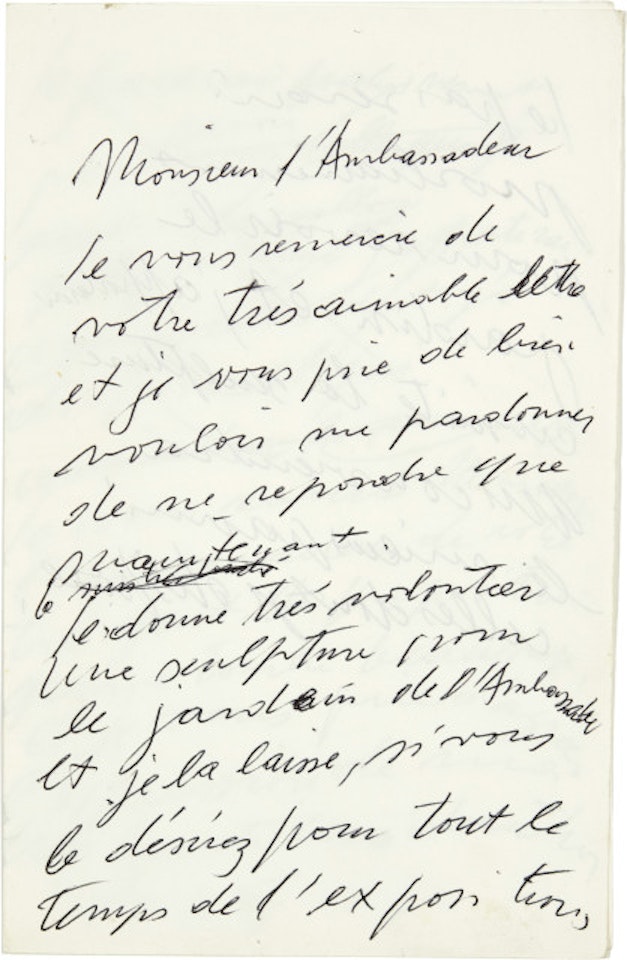 Monsieur l'Ambassadeur
Je vous remercie de
votre trés aimable lettre
et je vous prie de bien
vouloir me pardonner
de ne repondre que
maintenant.
Je donne trés volontier
une sculpture pour
le jardin de l'Ambassade
et je la laisse, si vous
le désirez pour tout le
temps de l'exposition,